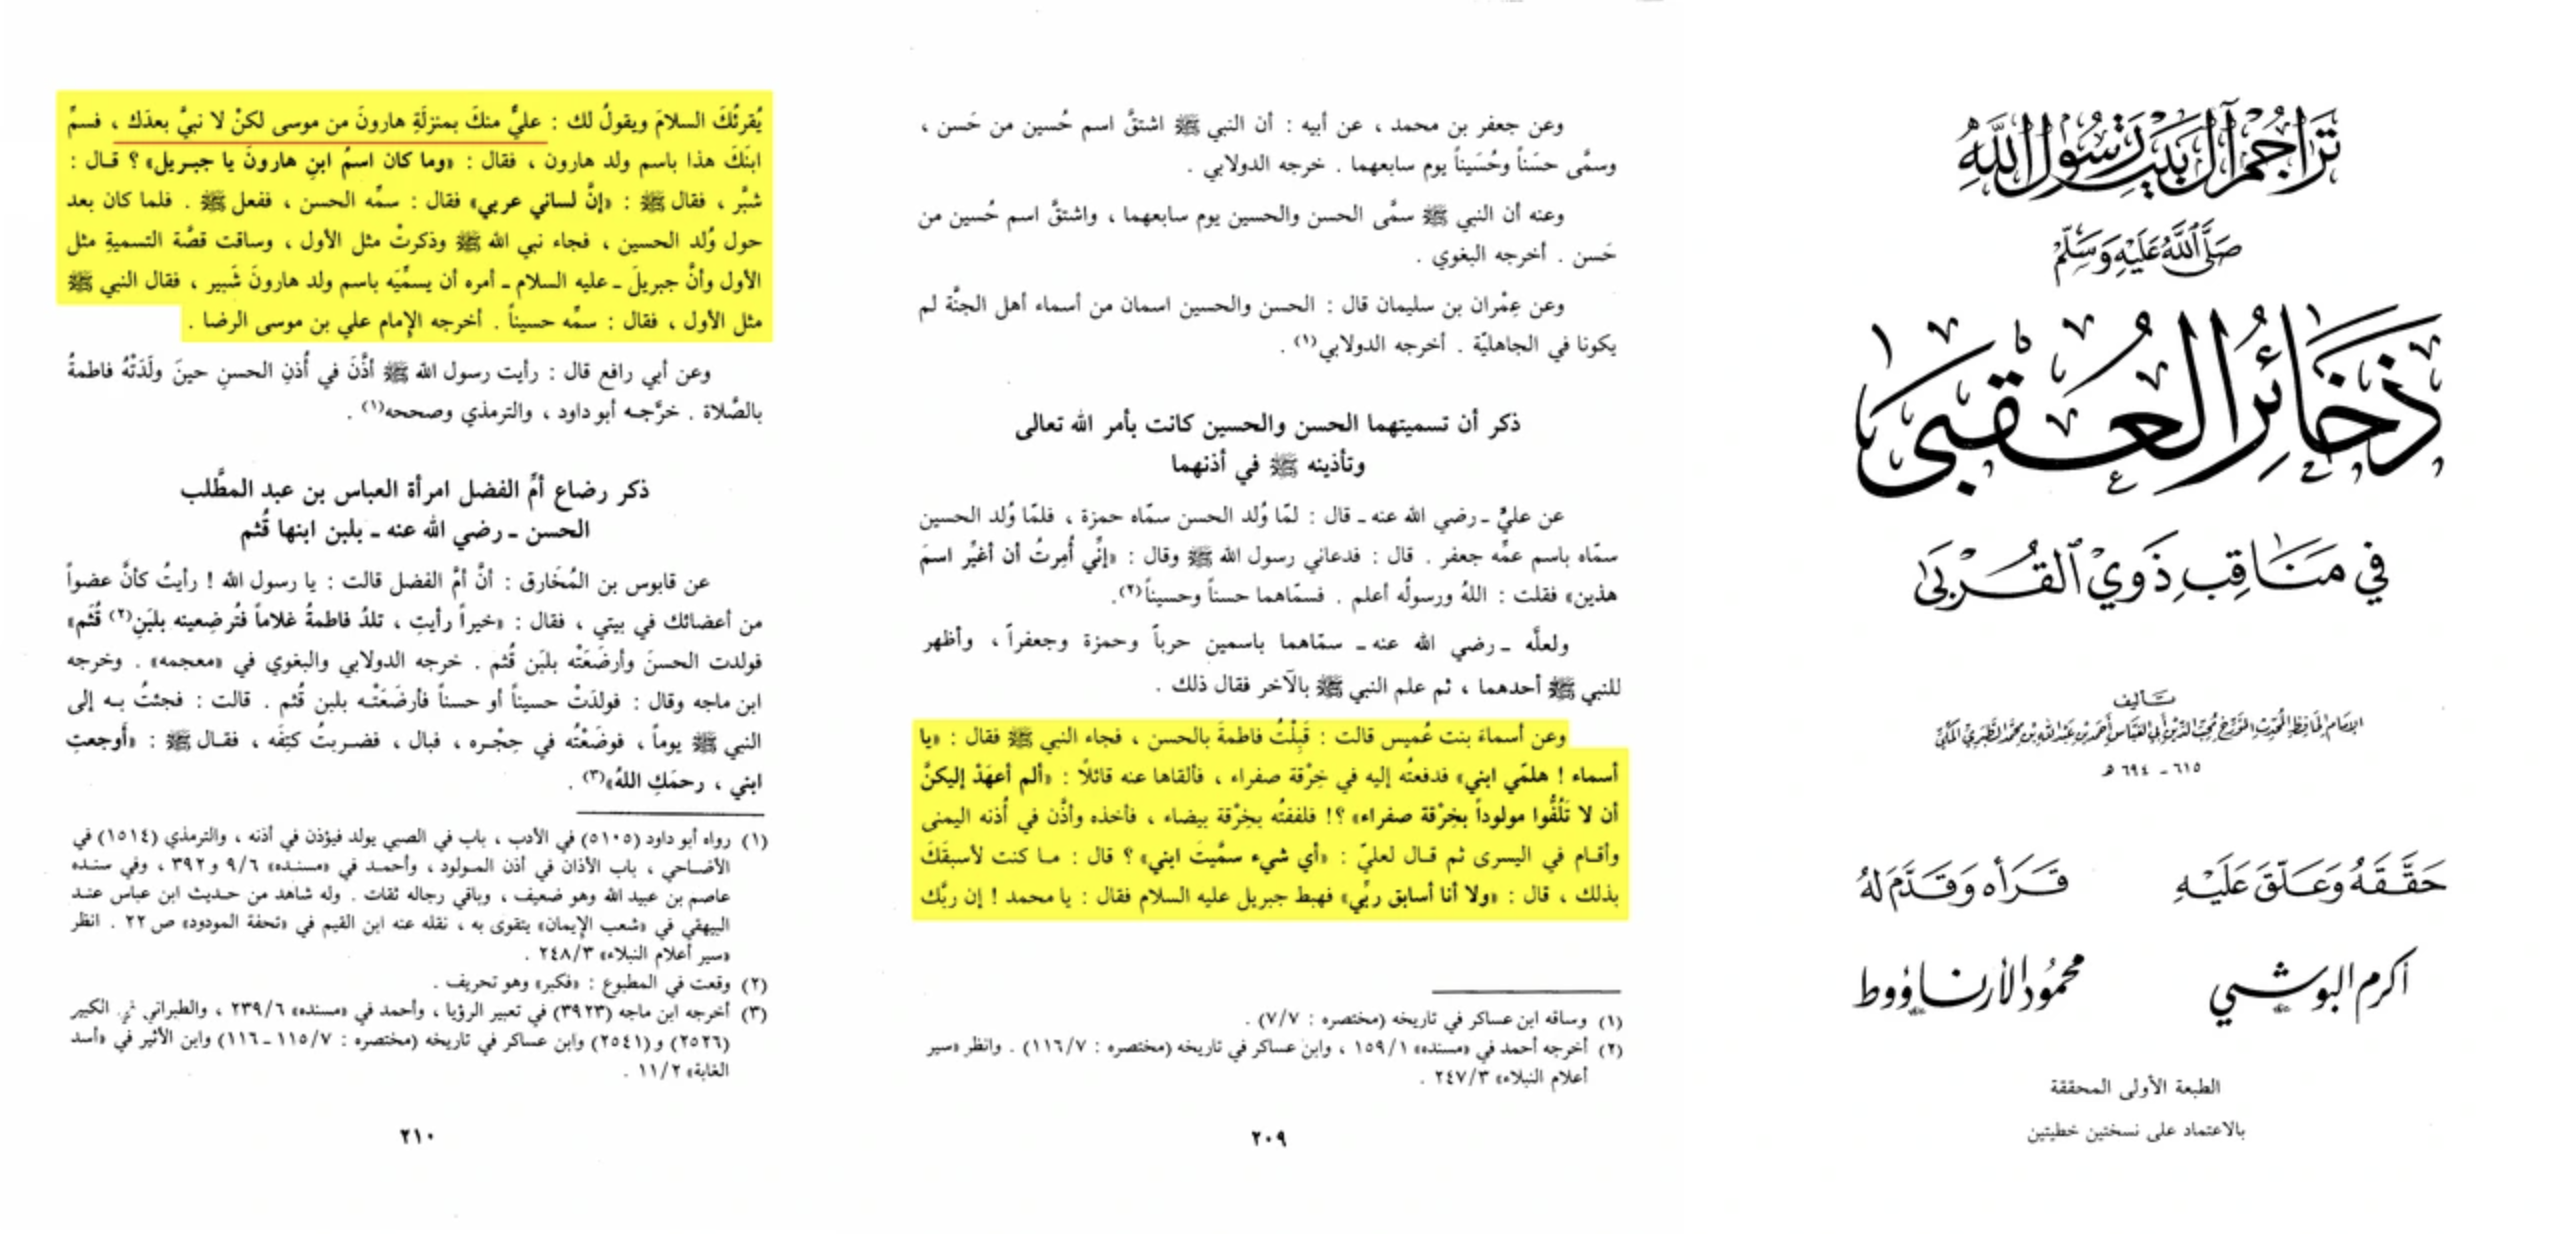 تراجم آل بيت رسول الله
صلى الله عليه وسلم
ذخائر العقبى
في مناقب ذوي القربى
تأليف
الإمام الحافظ المحدث المؤرخ محب الدين أبي العباس أحمد بن عبد الله بن محمد الطبري المكي
٦١٥ - ٦٩٤ هـ
حققه وعلق عليه
أكرم البوشي
قرأه وقدم له
محمود الأرناؤوط
الطبعة الأولى المحققة
بالاعتماد على نسختين خطيتين
وعن جعفر بن محمد ، عن أبيه : أن النبي ﷺ اشتقَّ اسم حُسين من حَسن ،
وسمَّى حسَناً وحُسَيناً يوم سابعهما . خرجه الدولابي .
وعنه أن النبي ﷺ سمَّى الحسن والحسين يوم سابعهما ، واشتقَّ اسم حُسين من
حَسن . أخرجه البغوي .
وعن عِمْران بن سليمان قال : الحسن والحسين اسمان من أسماء أهل الجنَّة لم
يكونا في الجاهليّة . أخرجه الدولابي(١) .
ذكر أن تسميتهما الحسن والحسين كانت بأمر الله تعالى
وتأذينه ﷺ في أذنهما
عن عليٍّ ـ رضي الله عنه ـ قال : لمّا وُلد الحسن سمّاه حمزة ، فلمّا وُلد الحسين
سمّاه باسم عمِّه جعفر . قال : فدعاني رسول الله ﷺ وقال : «إنِّي أُمِرتُ أن أغيِّر اسمَ
هذين» فقلت : اللهُ ورسولُه أعلم . فسمّاهما حسناً وحسيناً(٢).
ولعلَّه ـ رضي الله عنه ـ سمّاهما باسمين حرباً وحمزة وجعفراً ، وأظهر
للنبي ﷺ أحدهما ، ثم علم النبي ﷺ بالآخر فقال ذلك .
وعن أسماءَ بنت عُميس قالت : قَبِلْتُ فاطمةَ بالحسن ، فجاء النبي ﷺ فقال : «يا
أسماء ! هلمّي ابني» فدفعتُه إليه في خِرْقة صفراء ، فألقاها عنه قائلاً : «ألم أعهَدْ إليكنَّ
أن لا تَلُفُّوا مولوداً بخِرْقة صفراء» ؟! فلففتُه بخِرْقة بيضاء ، فأخذه وأذَّن في أذنه اليمنى
وأقام في اليسرى ثم قال لعليّ : «أي شيء سمَّيتَ ابني» ؟ قال : ما كنت لأسبقَكَ
بذلك ، قال : «ولا أنا أسابق ربِّي» فهبط جبريل عليه السلام فقال : يا محمد ! إن ربَّك
(١) وساقه ابن عساكر في تاريخه (مختصره : ٧/٧) .
(٢) أخرجه أحمد في «مسنده» ١٥٩/١ ، وابن عساكر في تاريخه (مختصره : ١١٦/٧) . وانظر «سير
أعلام النبلاء» ٢٤٧/٣ .
٢٠٩
يُقرئُكَ السلامَ ويقولُ لك : عليٌّ منكَ بمنزلَةِ هارونَ من موسى لكنْ لا نبيَّ بعدَك ، فسمِّ
ابنَكَ هذا باسم ولد هارون ، فقال : «وما كان اسمُ ابنِ هارونَ يا جبريل» ؟ قال :
شبَّر ، فقال ﷺ : «إنَّ لساني عربي» فقال : سمِّه الحسن ، ففعل ﷺ . فلما كان بعد
حول وُلد الحسين ، فجاء نبي الله ﷺ وذكرتْ مثل الأول ، وساقت قصَّة التسميةِ مثل
الأول وأنَّ جبريلَ ـ عليه السلام ـ أمره أن يسمِّيَه باسم ولد هارونَ شَبير ، فقال النبي ﷺ
مثل الأول ، فقال : سمِّه حسيناً . أخرجه الإمام علي بن موسى الرضا .
وعن أبي رافع قال : رأيت رسول الله ﷺ أذَّنَ في أُذنِ الحسنِ حينَ ولَدَتْهُ فاطمةُ
بالصَّلاة . خرَّجه أبو داود ، والترمذي وصححه(١) .
ذكر رضاع أمِّ الفضل امرأة العباس بن عبد المطَّلب
الحسن ـ رضي الله عنه ـ بلبن ابنها قُثم
عن قابوس بن المُخَارق : أنَّ أمَّ الفضل قالت : يا رسول الله ! رأيتُ كأنَّ عضواً
من أعضائك في بيتي ، فقال : «خيراً رأيتِ ، تلدُ فاطمةُ غلاماً فتُرضِعينه بلبَنِ(٢) قُثَم»
فولدت الحسنَ وأرضَعَتْه بلبَن قُثم . خرجه الدولابي والبغوي في «معجمه» . وخرجه
ابن ماجه وقال : فولدَتْ حسيناً أو حسناً فأرضَعَتْه بلبن قُثم . قالت : فجئتُ به إلى
النبي ﷺ يوماً ، فوضَعْتُه في حِجْره ، فبال ، فضربتُ كتِفَه ، فقال ﷺ : «أوجعتِ
ابني ، رحمَكِ اللهُ»(٣) .
(١) رواه أبو داود (٥١٠٥) في الأدب ، باب في الصبي يولد فيؤذن في أذنه ، والترمذي (١٥١٤) في
الأضاحي ، باب الأذان في أذن المولود ، وأحمد في «مسنده» ٩/٦ و٣٩٢ ، وفي سنده
عاصم بن عبيد الله وهو ضعيف ، وباقي رجاله ثقات . وله شاهد من حديث ابن عباس عند
البيهقي في «شعب الإيمان» يتقوى به ، نقله عنه ابن القيم في «تحفة المودود» ص ٢٢ . انظر
«سير أعلام النبلاء» ٢٤٨/٣ .
(٢) وقعت في المطبوع : «فكبر» وهو تحريف .
(٣) أخرجه ابن ماجه (٣٩٢٣) في تعبير الرؤيا ، وأحمد في «مسنده» ٢٣٩/٦ ، والطبراني في الكبير
(٢٥٢٦) و(٢٥٤١) وابن عساكر في تاريخه (مختصره : ١١٥/٧ ـ ١١٦) وابن الأثير في «أسد
الغابة» ١١/٢ .
٢١٠